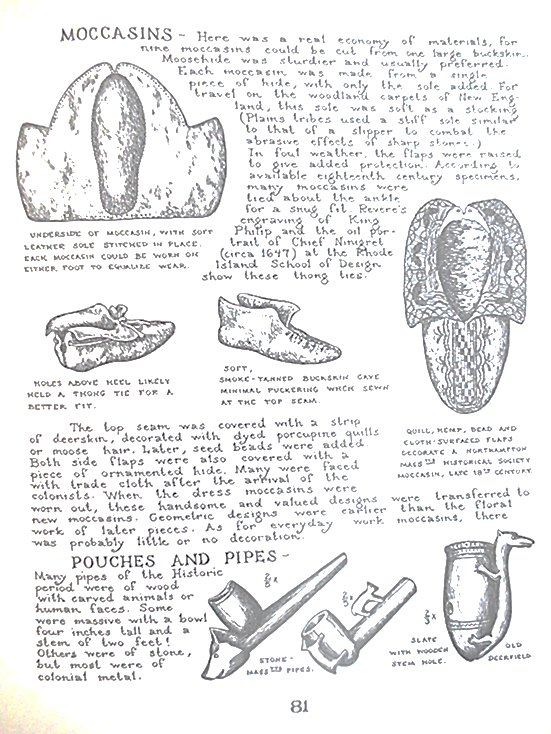 MOCCASINS - Here was a real economy of materials, for
nine moccasins could be cut from one large buckskin.
Moosehide was sturdier and usually preferred.
Each moccasin was made from a single
piece of hide, with only the sole added. For
travel on the woodland carpets of New Eng-
land, this sole was soft as a stocking
(Plains tribes used a stiff sole similar
to that of a slipper to combat the
abrasive effects of sharp stones.)
In foul weather, the flaps were raised
to give added protection. According to
available eighteenth century specimens,
many moccasins were
tied about the ankle
for a snug fit. Revere's
engraving of King
Philip and the oil por-
trait of Chief Ninigret
(circa 1647) at the Rhode
Island School of Design
show these thong ties.
UNDERSIDE OF MOCCASIN, WITH SOFT
LEATHER SOLE STITCHED IN PLACE.
EACH MOCCASIN COULD BE WORN ON
EITHER FOOT TO EQUALIZE WEAR.
HOLES ABOVE HEEL LIKELY
HELD A THONG TIE FOR A
BETTER FIT.
SOFT,
SMOKE-TANNED BUCKSKIN GAVE
MINIMAL PUCKERING WHEN SEWN
AT THE TOP SEAM.
QUILL, HEMP, BEAD AND
CLOTH-SURFACED FLAPS
DECORATE A NORTHAMPTON
MASSTTS HISTORICAL SOCIETY
MOCCASIN, LATE 18TH CENTURY.
The top seam was covered with a strip
of deerskin, decorated with dyed porcupine quills
or moose hair. Later, seed beads were added.
Both side flaps were also covered with a
piece of ornamented hide. Many were faced
with trade cloth after the arrival of the
colonists. When the dress moccasins were
worn out, these handsome and valued designs were transferred to
new moccasins. Geometric designs were earlier than the floral
work of later pieces. As for everyday work moccasins, there
was probably little or no decoration.
POUCHES AND PIPES -
Many pipes of the Historic
period were of wood
with carved animals or
human faces. Some
were massive with a bowl
four inches tall and a
stem of two feet!
Others were of stone,
but most were of
colonial metal.
STONE -
MASSTTS PIPES.
SLATE
WITH WOODEN
STEM HOLE.
OLD
DEERFIELD
81